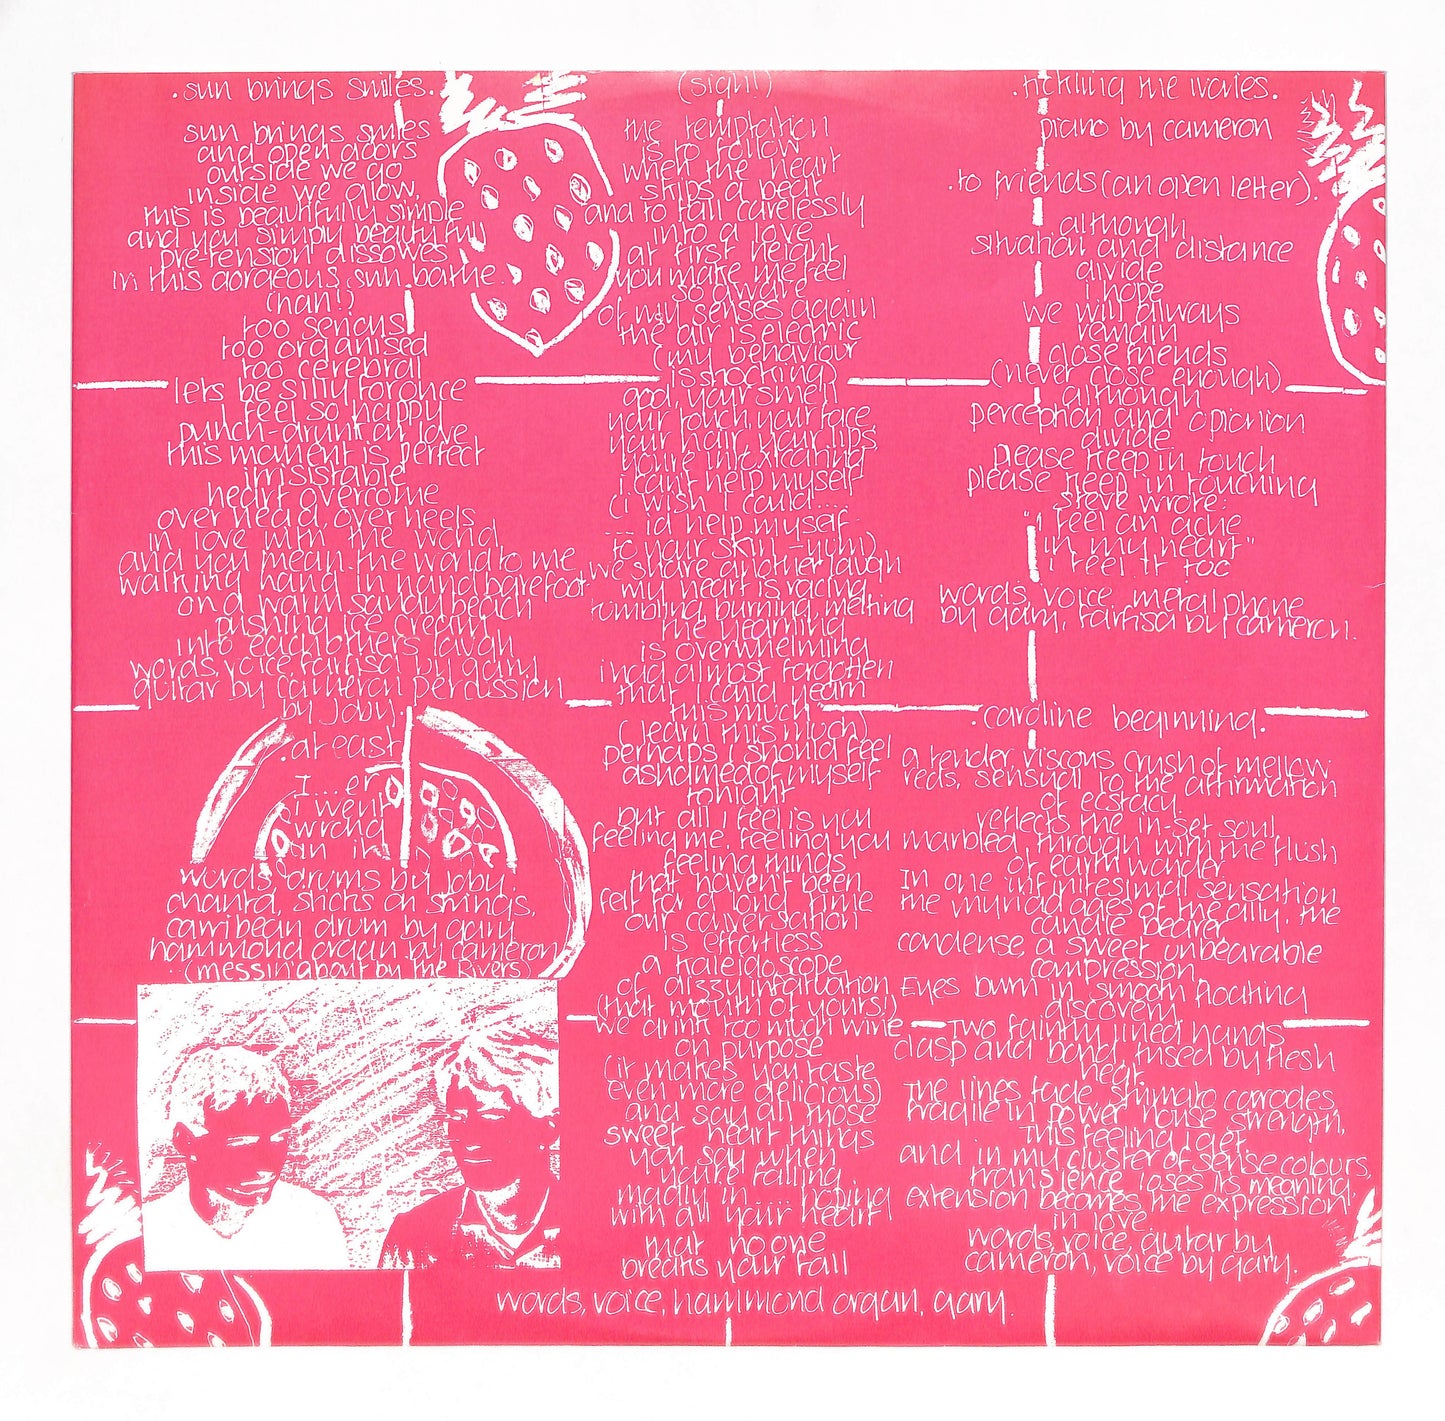 .sun brings smiles.
sun brings smiles
and open doors
outside we go
inside we glow,
this is beautifully simple
and you simply beautifully
pre-tension dissolves
in this gorgeous sun bathe.
(nah!)
too serious
too organised
too cerebral
lets be silly for once
i feel so happy
punch-drunk on love
this moment is perfect
irrisistable
heart overcome
over head, over heels
in love with the world
and you mean the world to me
walking hand in hand barefoot
on a warm sandy beach
pushing ice cream
into each others laugh
words, voice farfisa by gary,
guitar by cameron percussion
by joby.
.at east
I...er
i went
wrong
in it
words, drums by joby.
chanta, sticks on strings,
carribean drum by gary
hammond organ by cameron
(messin' about by the Rivers)
(sigh!)
the temptation
is to follow
when the heart
skips a beat
and to fall carelessly
into a love
at first height
you make me feel
so aware
of my senses again
the air is electric
(my behaviour
is shocking)
god, your smell
your touch, your face
your hair, your lips
you're intoxicating
i can't help myself
(i wish i could...
... id help myself
to your skin - yum)
we share another laugh
my heart is racing,
tumbling, burning, melting
the yearning
is overwhelming
i had almost forgotten
that i could yearn
this much
(learn this much)
perhaps i should feel
ashamed of myself
tonight
but all i feel is you
feeling me, feeling you
feeling things
that haven't been
felt for a long time
our conversation
is effortless
a kaleidoscope
of dizzy infatuation
(that mouth of yours!)
we drink too much wine
on purpose
(it makes you taste
even more delicious)
and say all those
sweet heart things
you say when
you're falling
madly in..... hoping
with all your heart
that no one
breaks your fall
words, voice, hammond organ, gary.
.tickling the ivories.
piano by cameron
.to friends (an open letter).
although
situation and distance
divide
i hope
we will always
remain
close friends
(never close enough)
although
perception and opionion
divide
please keep in touch
please keep in touching
steve wrote:
"i feel an ache
in my heart"
i feel it too
words, voice, metalphone
by gary, farfisa by cameron.
.caroline beginning.
a tender, viscous crush of mellow
reds, sensual to the affirmation
of ecstacy.
reflects the in-set soul,
marbled, through with the flush
of earth wonder.
In one infinitesimal sensation
the myriad ages of the ally, the
candle bearer
condense, a sweet unbearable
compression,
Eyes burn in smooth floating
discovery,
Two faintly lined hands
clasp and bond, fused by flesh
heat,
The lines fade, stimato corrodes,
fragile in power house strength,
This feeling i get,
and in my cluster of sense colours,
transience loses its meaning,
extension becomes the expression
in love
words, voice, guitar by
cameron, voice by gary.